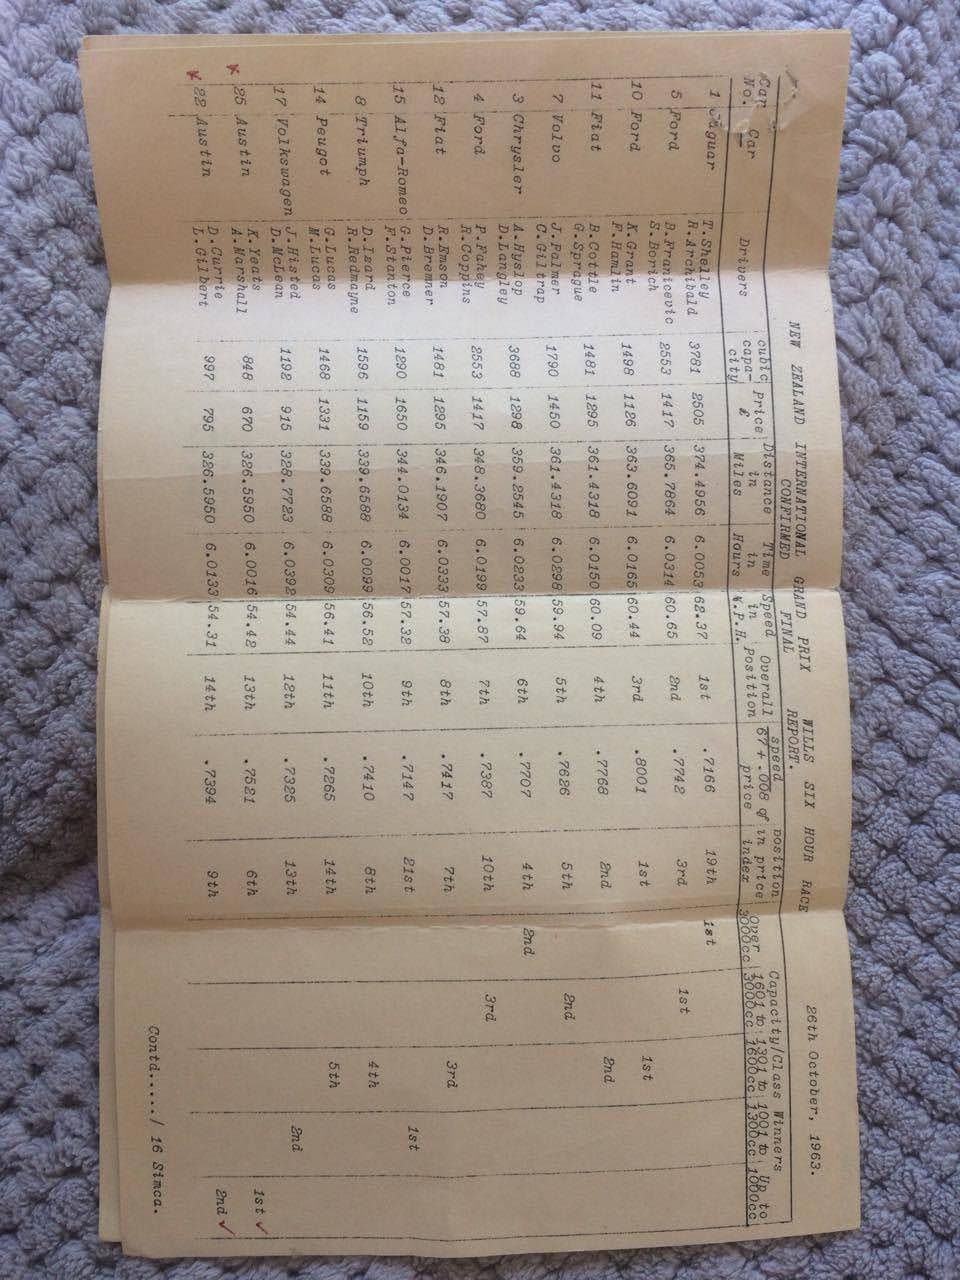 NEW ZEALAND INTERNATIONAL GRAND PRIX WILLS SIX HOUR RACE 26th October, 1963.
CONFIRMED FINAL REPORT.
Car No. Car Drivers cubic capa-city Price £ Distance in Miles Time in Hours Speed in M.P.H. Overall Position speed 67 + .008 of price position in price index Capacity/Class Winners Over 3000cc 1601 to 3000cc 1301 to 1600cc 1001 to 1300cc Up to 1000cc
1 Jaguar T.Shelley 3781 2505 374.4956 6.0053 62.37 1st .7166 19th 1st
R.Archibald
5 Ford D.Franicevic 2553 1417 365.7864 6.0314 60.65 2nd .7742 3rd 1st
S.Borich
10 Ford K.Grant 1498 1126 363.6091 6.0165 60.44 3rd .8001 1st 1st
F.Hamlin
11 Fiat B.Cottle 1481 1295 361.4318 6.0150 60.09 4th .7768 2nd 2nd
G.Sprague
7 Volvo J.Palmer 1790 1450 361.4318 6.0298 59.94 5th .7626 5th 2nd
C.Giltrap
3 Chrysler A.Hyslop 3688 1298 359.2545 6.0233 59.64 6th .7707 4th 2nd
D.Langley
4 Ford P.Fahey 2553 1417 348.3680 6.0199 57.87 7th .7387 10th 3rd
R.Coppins
12 Fiat R.Emson 1481 1295 346.1907 6.0333 57.38 8th .7417 7th 3rd
D.Bremner
15 Alfa-Romeo G.Pierce 1290 1650 344.0134 6.0017 57.32 9th .7147 21st 1st
F.Stanton
8 Triumph D.Isard 1596 1159 339.6588 6.0099 56.52 10th .7410 8th 4th
R.Redmayne
14 Peugot G.Lucas 1468 1331 339.6588 6.0309 56.41 11th .7265 14th 5th
M.Lucas
17 Volkswagen J.Histed 1192 915 328.7723 6.0392 54.44 12th .7325 13th 2nd
D.McLean
25 Austin K.Yeats 848 670 326.5950 6.0016 54.42 13th .7521 6th 1st
A.Marshall
22 Austin D.Currie 997 795 326.5950 6.0133 54.31 14th .7394 9th 2nd
L.Gilbert
Contd...../ 16 Simca.